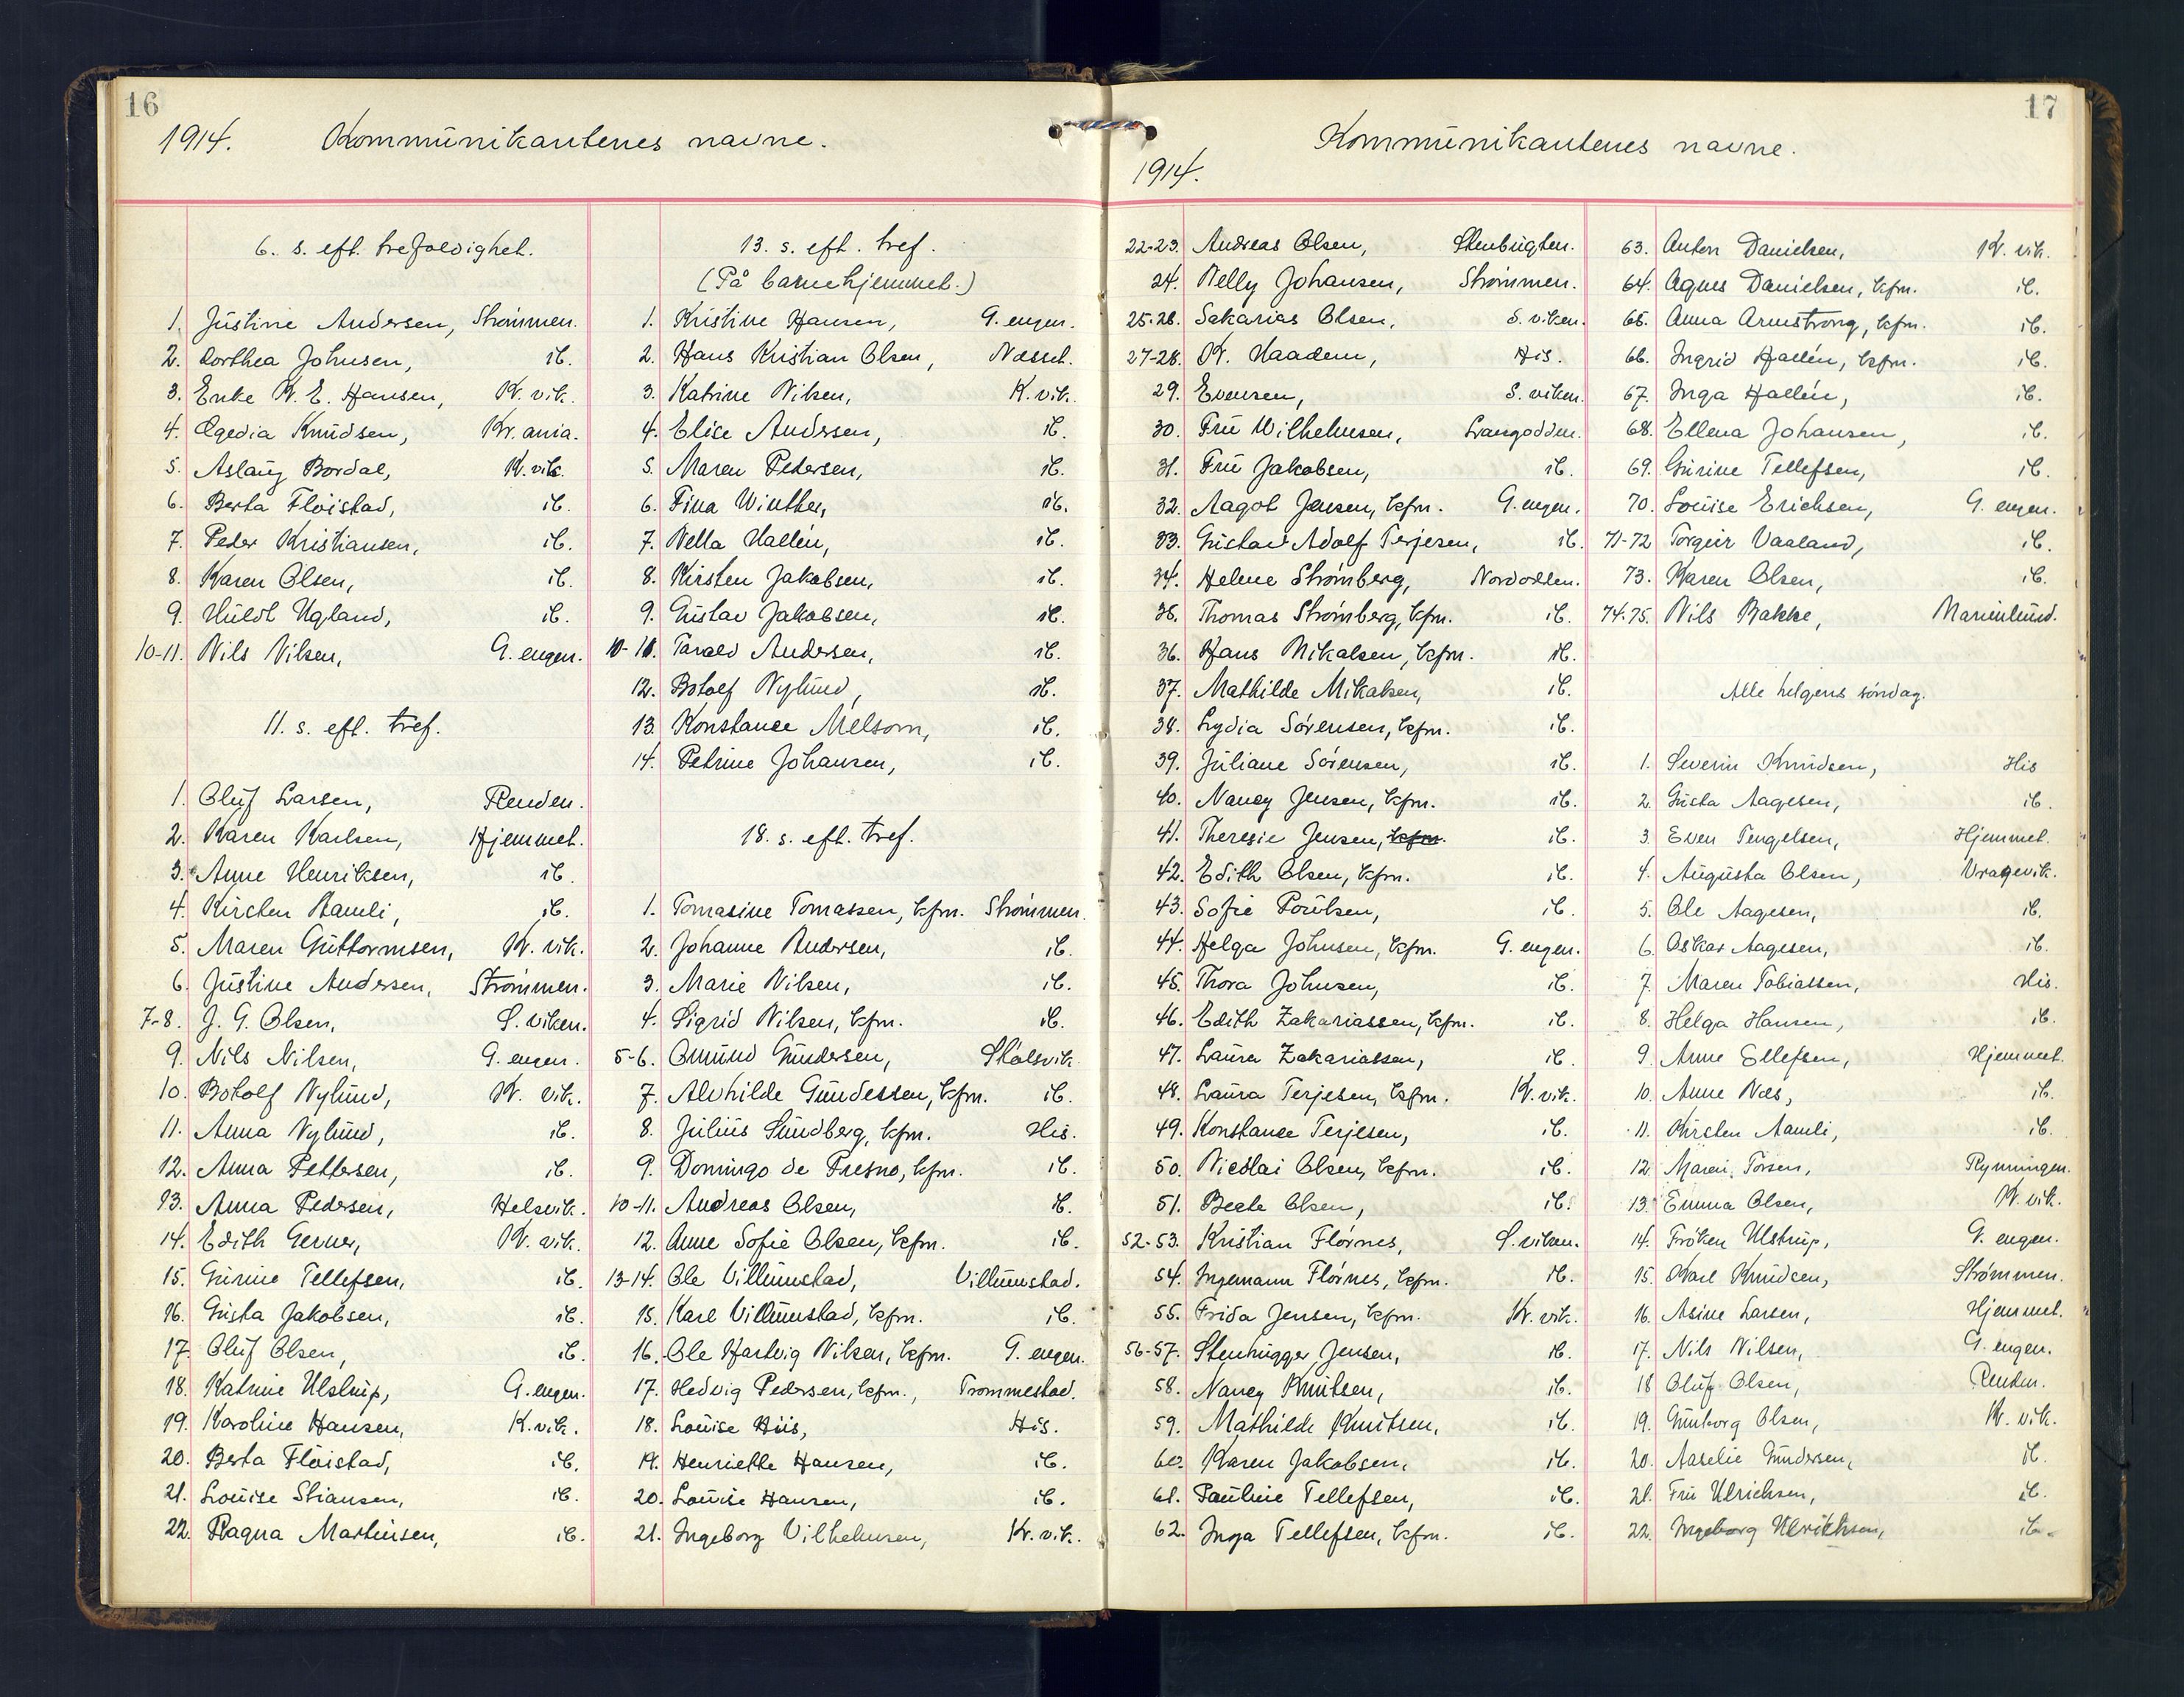 16
1914. Kommunikantenes navne.
6. s. eft. trefoldighet.
1. Justine Andersen, Strømmen.
2. Dorthea Johnsen, ib.
3. Enke K. E. Hansen, Kr. vik.
4. Egedia Knudsen, Kr. ania.
5. Aslaug Bordal, Kr. vik.
6. Berta Fløistad, ib.
7. Peder Kristiansen, ib.
8. Karen Olsen, ib.
9. Huldt Ugland, ib.
10-11. Nils Nilsen, G. engen.
11. s. eft. tref.
1. Oluf Larsen, Renden.
2. Karen Karlsen, Hjemmet.
3. Anne Henriksen, ib.
4. Kirsten Aamli, ib.
5. Maren Guttormsen, Kr. vik.
6. Justine Andersen, Strømmen.
7-8. J. G. Olsen, S. viken.
9. Nils Nilsen, G. engen.
10. Botolf Nylund, Kr. vik.
11. Anna Nylund, ib.
12. Anna Pettersen, ib.
13. Anna Pedersen, Helsvik.
14. Edith Gerner, Kr. vik.
15. Gurine Tellefsen, ib.
16. Gusta Jakobsen, ib.
17. Oluf Olsen, ib.
18. Katrine Ulstrup, G. engen.
19. Karoline Hansen, K. vik.
20. Berta Fløistad, ib.
21. Louise Stiansen, ib.
22. Ragna Martinsen, ib.
13. s. eft. tref.
(På barnehjemmet.)
1. Kristine Hansen, G. engen.
2. Hans Kristian Olsen, Næsset.
3. Katrine Nilsen, K. vik.
4. Elise Andersen, ib.
5. Maren Pedersen, ib.
6. Fina Winther, ib.
7. Nella Hallén, ib.
8. Kirsten Jakobsen, ib.
9. Gustav Jakobsen, ib.
10-11. Tarald Andersen, ib.
12. Botolf Nylund, ib.
13. Konstance Melsom, ib.
14. Petrine Johansen, ib.
18. s. eft. tref.
1. Tomasine Tomassen, kfm. Strømmen.
2. Johanne Andersen, ib.
3. Marie Nilsen, ib.
4. Sigrid Nilsen, kfm. ib.
5-6. Omund Gundersen, Skolsvik.
7. Alvhilde Gundessen, kfm. ib.
8. Julius Sundberg, kfm. His.
9. Domingo de Fresno, kfm. ib.
10-11. Andreas Olsen, ib.
12. Anne Sofie Olsen, kfm. ib.
13-14. Ole Villumstad, Villumstad.
15. Karl Villumstad, kfm. ib.
16. Ole Hartvig Nilsen, kfm. G. engen.
17. Hedvig Pedersen, kfm., Trommestad.
18. Louise Hiis, His.
19. Henriette Hansen, ib.
20. Louise Hansen, ib.
21. Ingeborg Vilhelmsen, Kr. vik.
17
Kommunikantenes navne.
1914.
22-23. Andreas Olsen, Stenbugten.
24. Nelly Johansen, Strømmen.
25-26. Sakarias Olsen, S. viken.
27-28. K. Haadem, His.
29. Evensen, S. viken.
30. Fru Wilhelmsen, Langodden.
31. Fru Jakobsen, ib.
32. Aagot Jensen, kfm. G. engen.
33. Gustav Adolf Terjesen, ib.
34. Helene Strømberg, Nordodden.
35. Thomas Strømberg, kfm. ib.
36. Hans Mikalsen, kfm. ib.
37. Mathilde Mikalsen, ib.
38. Lydia Sørensen, kfm. ib.
39. Juliane Sørensen, ib.
40. Nancy Jensen, kfm. ib.
41. Theresie Jensen, kfm. ib.
42. Edith Olsen, kfm. ib.
43. Sofie Poulsen, ib.
44. Helga Johnsen, kfm. G. engen.
45. Thora Johnsen, ib.
46. Edith Zakariassen, kfm. ib.
47. Laura Zakariassen, ib.
48. Laura Terjesen, kfm. Kr. vik.
49. Konstance Terjesen, ib.
50. Nicolai Olsen, kfm. ib.
51. Beate Olsen, ib.
52-53. Kristian Flørnes, S. viken.
54. Ingemann Flørnes, kfm. ib.
55. Frida Jensen, kfm. Kr. vik.
56-57. Stenhugger Jensen, ib.
58. Nancy Knutsen, ib.
59. Mathilde Knutsen, ib.
60. Karen Jakobsen, ib.
61. Pauline Tellefsen, ib.
62. Inga Tellefsen, kfm. ib.
63. Anton Danielsen, Kr. vik.
64. Agnes Danielsen, kfm. ib.
65. Anna Armstrong, kfm. ib.
66. Ingrid Hallén, kfm. ib.
67. Inga Hallén, ib.
68. Ellena Johansen, ib.
69. Gurine Tellefsen, ib.
70. Louise Erichsen, G. engen.
71-72 Torgeir Vaaland, ib.
73. Karen Olsen, ib.
74-75. Nils Bakke, Marienlund.
Alle helgens søndag.
1. Severin Knudsen, His
2. Gusta Aagesen, ib.
3. Even Tengelsen, Hjemmet.
4. Augusta Olsen, Vragevik.
5. Ole Aagesen, ib.
6. Oskar Aagesen, ib.
7. Maren Tobiassen, His.
8. Helga Hansen, ib.
9. Anne Ellefsen, Hjemmet.
10. Anne Næs, ib.
11. Kirsten Aamli, ib.
12. Maren Torsen, Rynningen.
13. Emma Olsen, Kr. vik.
14. Frøken Ulstrup, G. engen.
15. Karl Knudsen, Strømmen.
16. Asine Larsen, Hjemmet.
17. Nils Nilsen, G. engen.
18 Oluf Olsen, Renden.
19. Gunborg Olsen, Kr. vik.
20. Aaselie Gundersen, ib.
21. Fru Ulrichsen, ib.
22. Ingeborg Ulrichsen, ib.